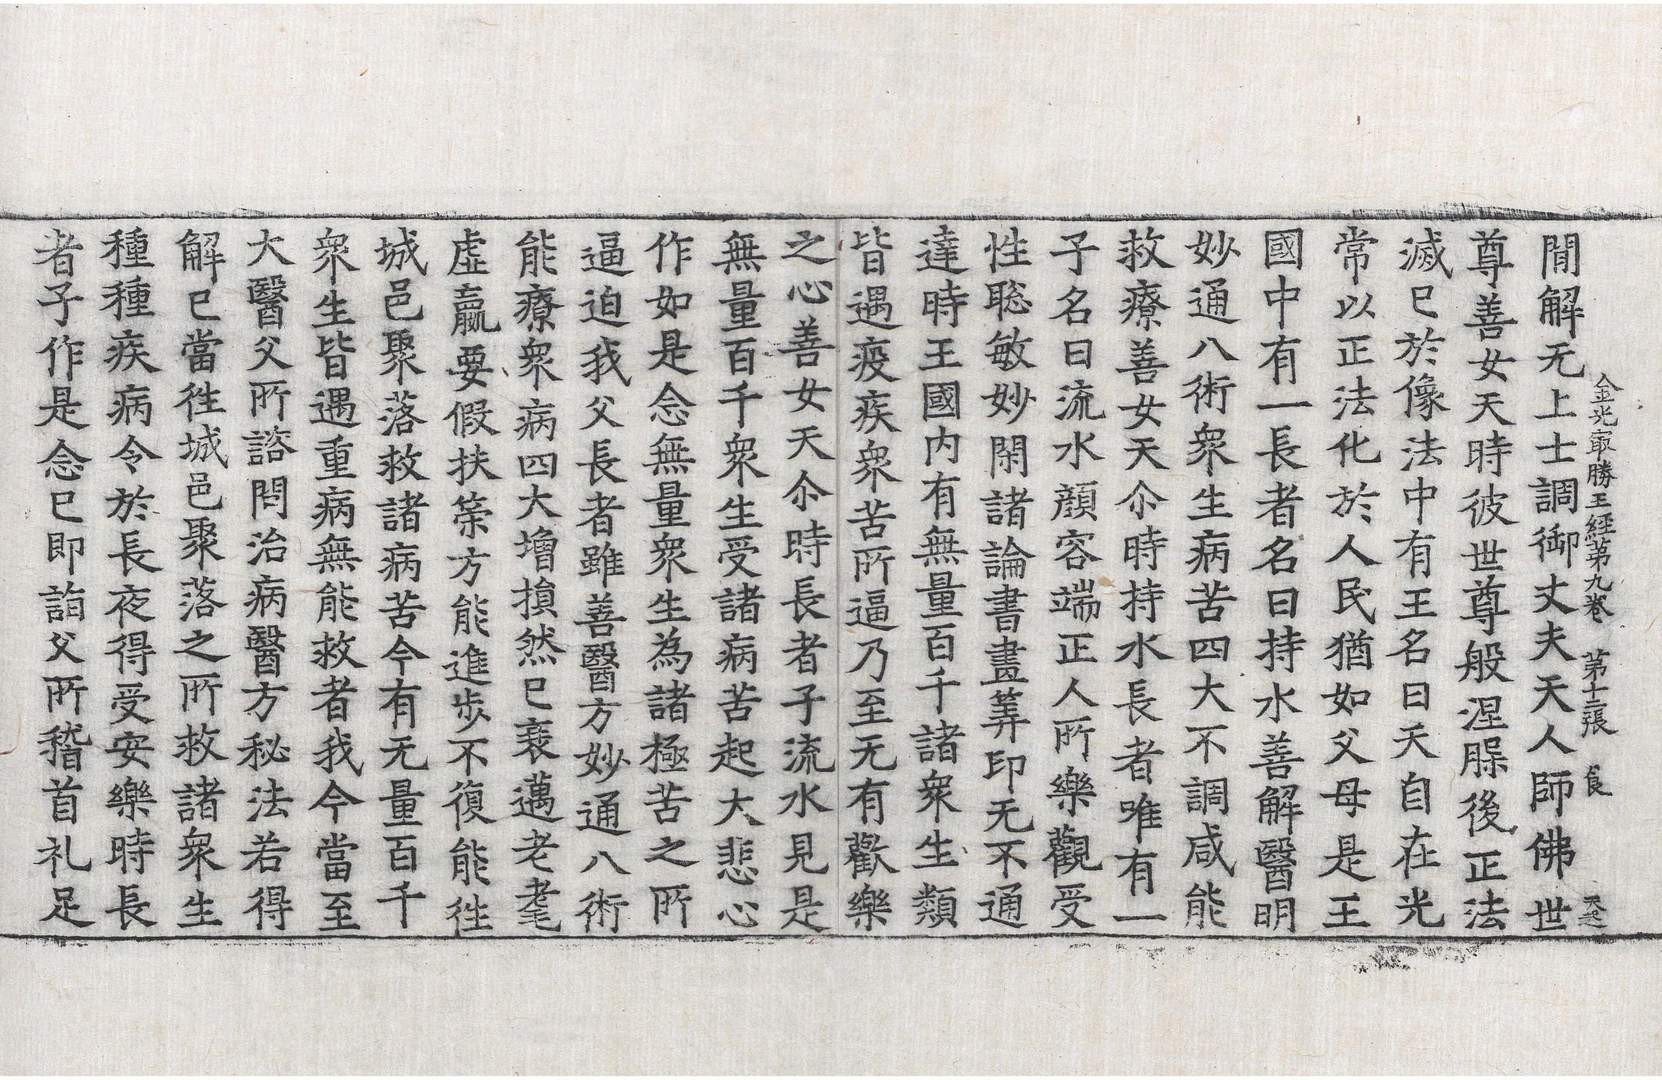 金光㝡勝王經第九卷 第十二張 良
間解无上士調御丈夫天人師佛世
尊善女天時彼世尊般涅槃後正法
滅已於像法中有王名曰天自在光
常以正法化於人民猶如父母是王
國中有一長者名曰持水善解醫明
妙通八術衆生病苦四大不調咸能
救療善女天尒時持水長者唯有一
子名曰流水顔容端正人所樂觀受
性聡敏妙閑諸論書畫筭印无不通
達時王國內有無量百千諸衆生類
皆遇疫疾衆苦所逼乃至无有歡樂
之心善女天尒時長者子流水見是
無量百千衆生受諸病苦起大悲心
作如是念無量衆生為諸極苦之所
逼迫我父長者雖善醫方妙通八術
能療衆病四大增損然已衰邁老耄
虛羸要假扶策方能進步不復能往
城邑聚落救諸病苦今有无量百千
衆生皆遇重病無能救者我今當至
大醫父所諮問治病醫方秘法若得
解已當往城邑聚落之所救諸衆生
種種疾病令於長夜得受安樂時長
者子作是念已即詣父所稽首礼足